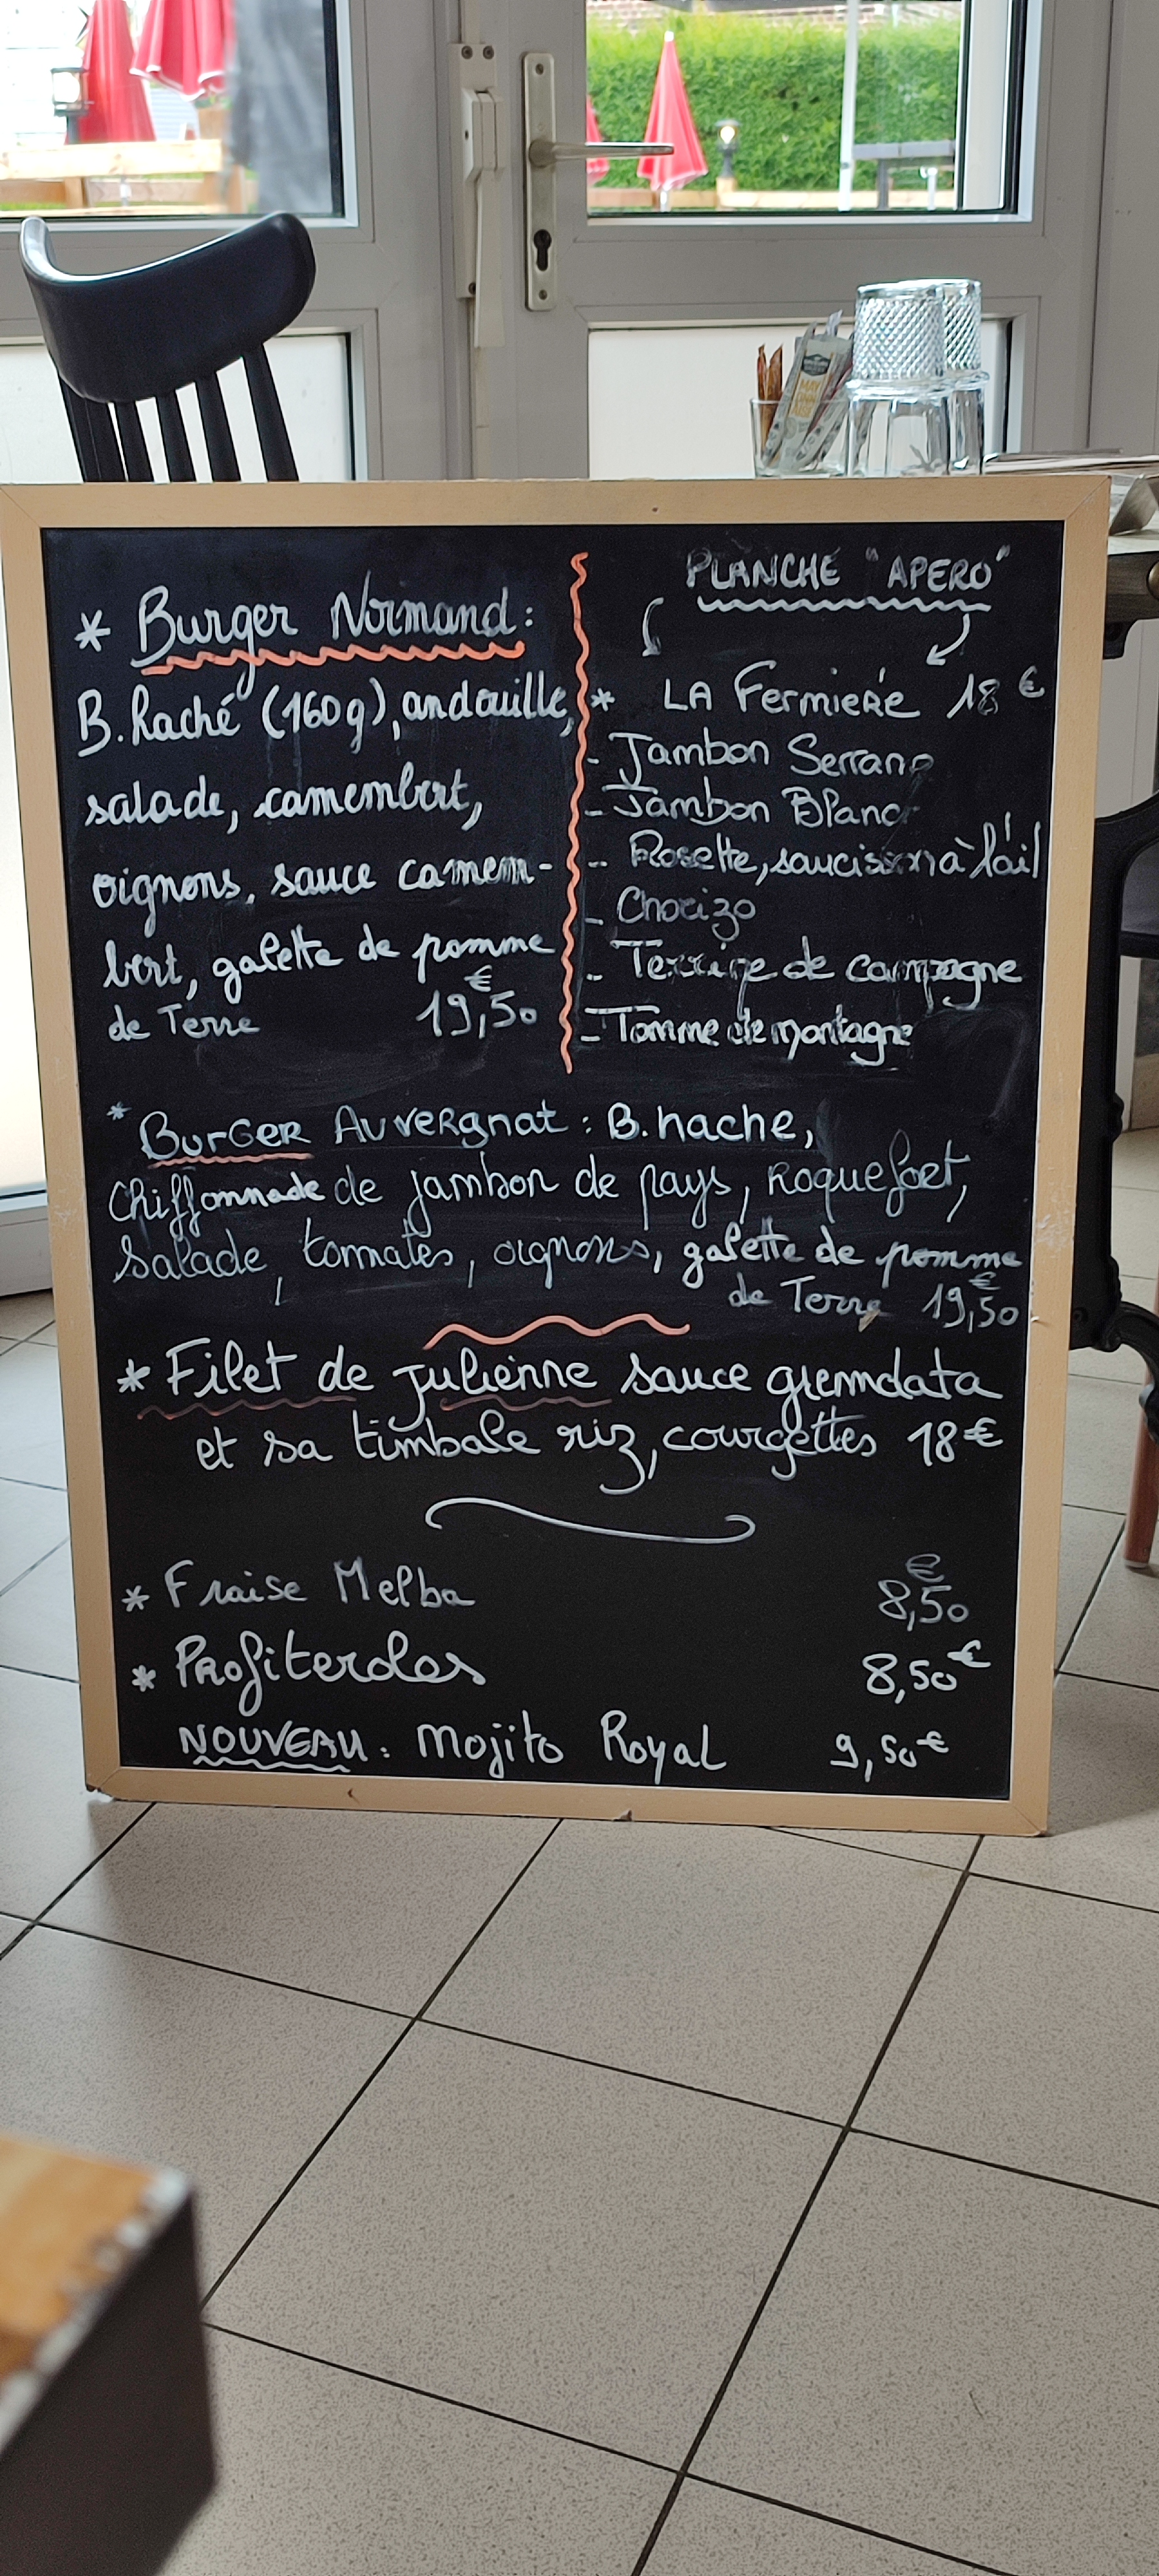 * Burger Normand:
B. haché (160g), andouille,
salade, camembert,
oignons, sauce camem-
bert, galette de pomme
de Terre 19,50 €
PLANCHE "APERO"
* LA FermieRe 18 €
- Jambon Serrano
- Jambon Blanc
- Rosette, saucisson à l'ail
- Chorizo
- Terrine de campagne
- Tomme de montagne
* BurGER AuveRgnat : B. hache,
Chiffonnade de jambon de pays, Roquefort,
Salade, tomates, oignons, galette de pomme
de Terre 19,50 €
* Filet de julienne sauce
et sa timbale riz, courgettes 18 €
* Fraise Melba 8,50 €
* Profiteroles 8,50 €
NOUVEAU : Mojito Royal 9,50 €